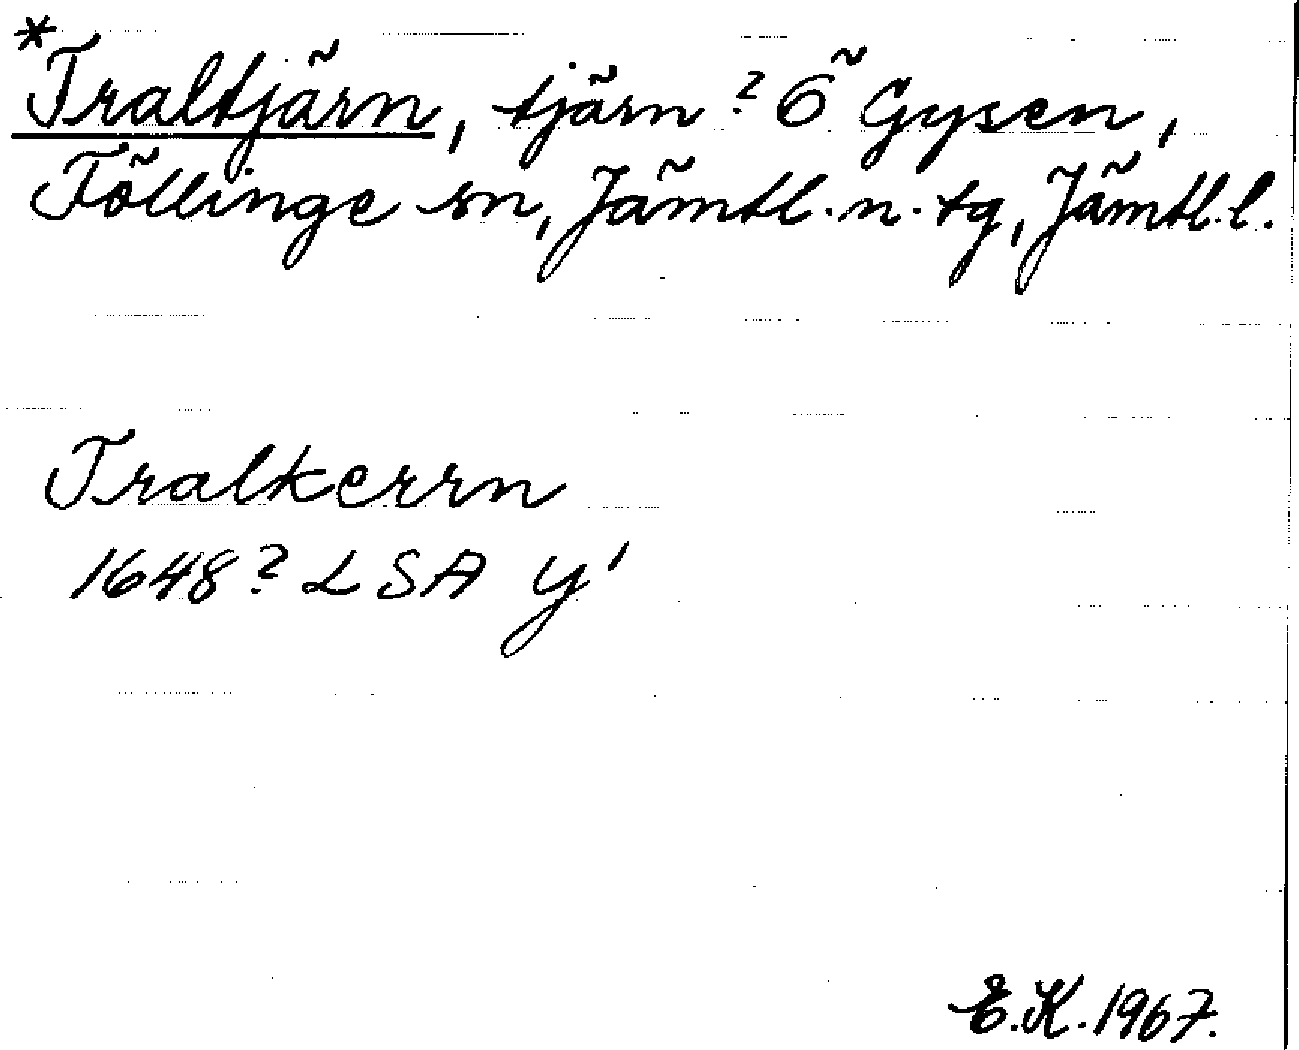 *Traltjärn, tjärn? Ö Gysen,
Föllinge sn, Jämtl. n. tg, Jämtl.l.
Tralkerrn
1648? LSA Y'
E.K. 1967.